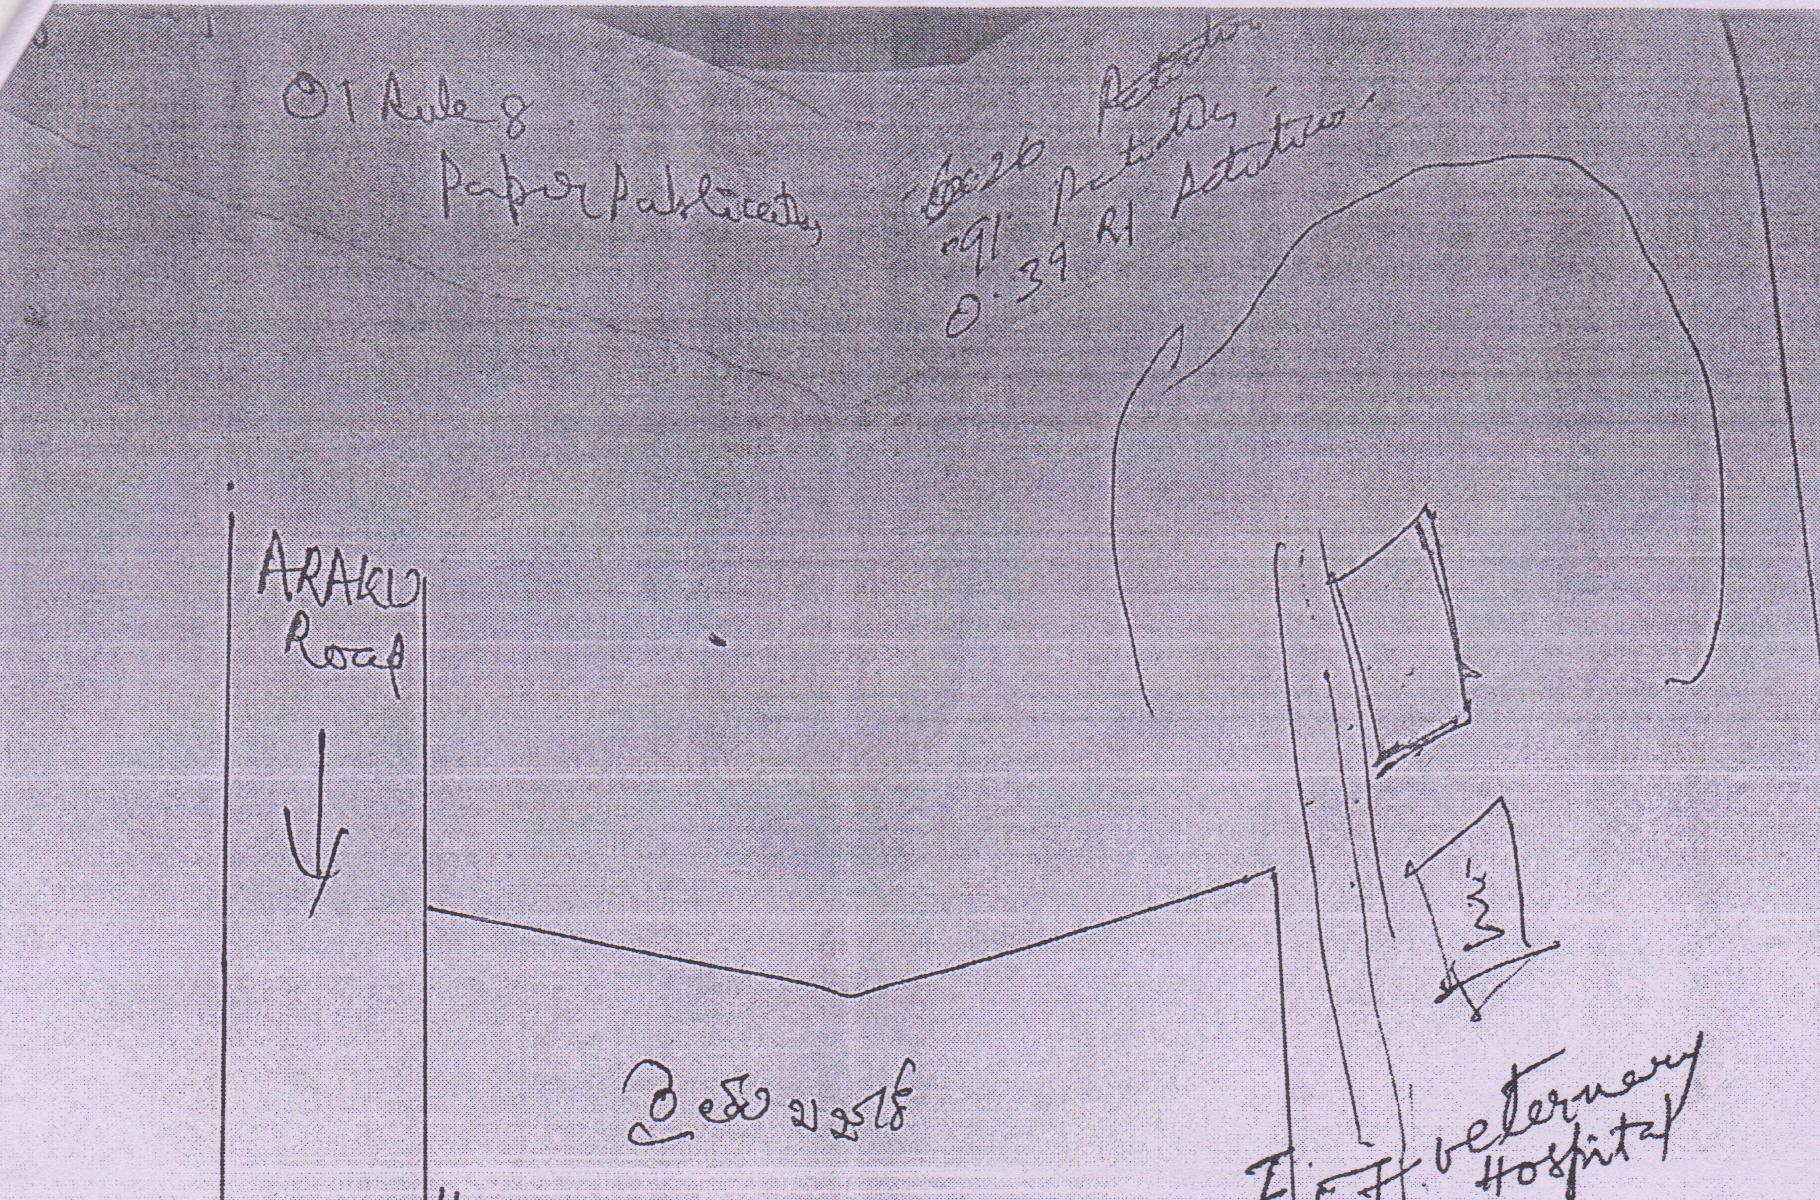 O1 Rule 8
Paper Publication
Sec 26 Petition
91 Petition
O.39 R1 Petition
ARAKU
Road
రైతు బజార్
veternary
Hospital